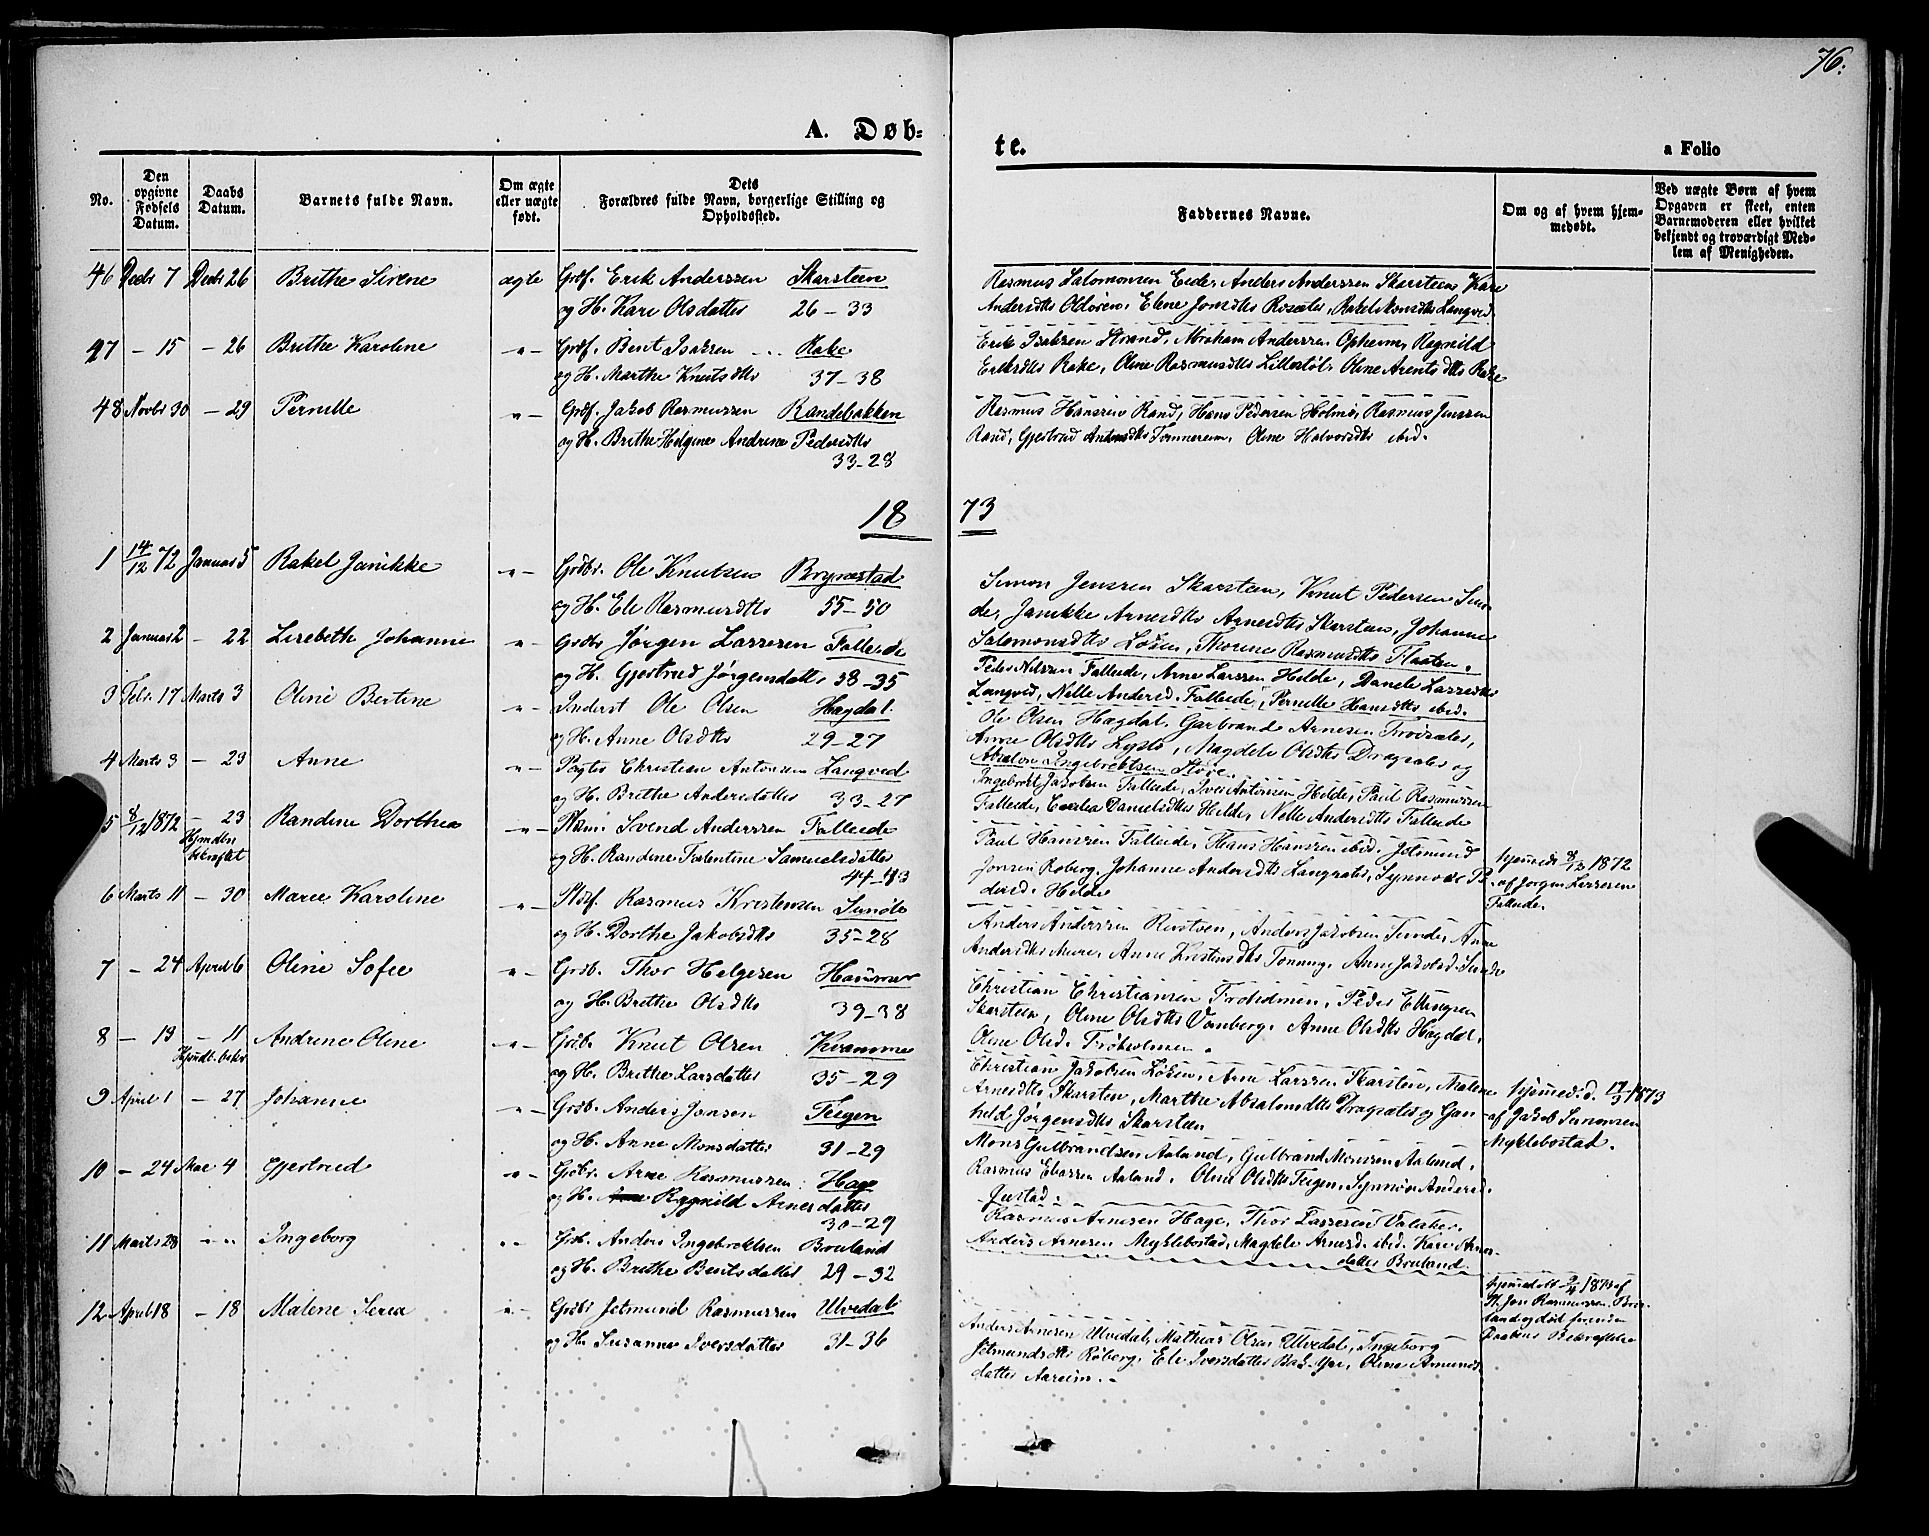 76.
A. Døb=
te.
a Folio
No.
Den opgivne Fødsels Datum.
Daabs Datum.
Barnets fulde Navn.
Om ægte eller uægte født.
Dets Forældres fulde Navn, borgerlige Stilling og Opholdssted.
Faddernes Navne.
Om og af hvem hjemmedøbt.
Ved uægte Børn af hvem Opgaven er skeet, enten Barnemoderen eller hvilket bekjendt og troværdigt Medlem af Menigheden.
46 Decbr 7 Decbr 26 Brithe Sirene ægte Grdf. Erik Anderssen Skarsteen
og H. Kari Olsdatter 26 – 33
Rasmus Salomonsen Eide, Anders Anderssen Skarsteen, Kari
Andersdtr Oldøren, Elene Jonsdtr Rosæter, Rakel Monsdtr Langvid.
47 – 15 – 26 Brithe Karoline –"– Grdf. Bent Isaksen Rake
og H. Marthe Knutsdtr 37–38
Erik Isaksen Strand, Abraham Anderssen Opheim, Ragnild
Eriksdtr Rake, Oline Rasmusdtr Lillestøl, Oline Arentsdtr Rake
48 Novbr 30 – 29 Pernille –"– Grdf. Jakob Rasmussen Randebakken
og H. Brithe Helgine Andrine Pedersdtr
33–28
Rasmus Hanssen Rand, Hans Pedersen Holmø, Rasmus Jenssen
Rand, Gjertrud Antonsdtr Tonnereim, Oline Halvorsdtr ibid.
18 73
1 14/12 72 Januar 5 Rakel Janikke –"– Grdbr. Ole Knutsen Brynestad
og H. Eli Rasmusdtr 55–50
Simon Jenssen Skarsteen, Knut Pedersen Sun-
de, Janikke Arnesdtr Arnesdtr Skarsteen, Johanne
Salomonsdtr Løken, Thorine Rasmusdtr Flaaten.
2 Januar 2 – 22 Lisebeth Johanne –"– Grdbr Jørgen Larssen Falleide
og H. Gjertrud Jørgensdatter 38–35
Peder Nilssen Falleide, Arne Larssen Hilde, Daniel Larssdtr
Langvid, Nille Andersd. Falleide, Pernille Hansdtr ibid.
3 Febr. 17 Marts 3 Oline Bertine –"– Inderst Ole Olsen Hagdal.
og H. Anne Olsdtr 29–27
Ole Olsen Hagdal, Garbrand Arnesen Froisæter,
Anne Olsdtr Lysto, Magdele Olsdtr Dragsæter og
Absalon Ingebrektsen Støre.
4 Marts 3 – 23 Anne –"– Pagter Christian Antonsen Langvid
og H. Brithe Andersdatter 33–27
Ingebrikt Jakobsen Falleide, Iver Antonsen Hilde, Paul Rasmussen
Falleide, Cecilia Danielsdtr Hilde, Nille Andersdtr Falleide
5 8/12 1872 – 23 Randine Dorthea –"– Svend Anderssen Falleide
Hjmdbn bekræftet
og H. Randine Falentine Samuelsdatter
44–43
Paul Hanssen Falleide, Hans Hanssen ibid. Jetmund
Jonsen Roberg, Johanne Andersdtr Langsæter, Synnøve Pe-
dersd. Hilde
hjemmedt 8/12 1872
af Jørgen Larssen
Falleide.
6 Marts 11 – 30 Marie Karoline –"– Rasmus Kristensen Sunde
og H. Dorthe Jakobsdtr 35–28
Anders Anderssen Rustøen, Anders Jakobsen Sunde, Anne
Andersdtr Muri, Anne Kristensdtr Tonning, Anne Jakobsd. Sunde
7 – 24 April 6 Oline Sofie –"– Grdb. Thor Helgesen Hammer
og H. Brithe Olsdtr 39–38
Christian Christiansen Froholmen, Peder Ellingsen
Skarsteen, Oline Olsdtr Vanberg, Anne Olsdtr Hagdal,
Oline Olsd. Froholmen.
8 – 13 – 11 Andrine Oline –"– Grdb. Knut Olsen Kvamme
Hjmdb. bekr.
og H. Brithe Larsdatter 35–29
Christian Jakobsen Løken, Arne Larssen Skarsten, Malene
Arnesdtr Skarsten, Marthe Absalonsdtr Dragsæter og Gun-
hild Jørgensdtr Skarsteen
hjemmed. d. 17/3 1873
af Jakob Simonsen
Myklebostad.
9 April 1 – 27 Johanne –"– Grdb. Anders Jonsen Feigen
og H. Anne Monsdatter 31–29
Mons Gulbrandsen Aaland, Gulbrand Monssen Aaland,
Rasmus Eliassen Aaland. Oline Olsdtr Feigen, Synnøve Andersd.
Justad.
10 – 24 Mai 4 Gjertrud –"– Grdbr. Arne Rasmussen Hage
og H. Ragnild Arnesdatter
30–29
Rasmus Arnesen Hage, Thor Larssen Valaker,
Anders Arnesen Myklebostad, Magdele Arnesd. ibid. Kari Arnes-
datter Bruland.
11 Marts 28 –"– Ingeborg –"– Grdb. Anders Ingebrektsen Bruland
og H. Brithe Bentsdatter 29–32
hjemmedøbt 2/4 1873 af
Jon Rasmussen Bru-
land og død forinden
Daabens Bekræftelse
12 April 18 – 18 Malene Seria –"– Grdbr Jetmund Rasmussen Ulvedal
og H. Susanne Iversdatter 31–36
Anders Arnesen Ulvedal, Mathias Olsen Ulvedal, Ingeborg
Jetmundsdtr Roberg, Eli Iversdatter, Oline Amunds-
datter Aareim.